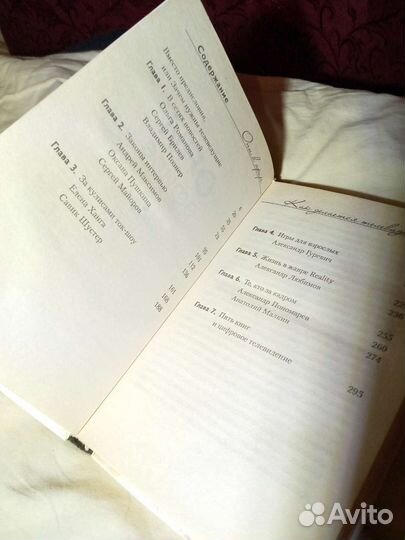 Содержание
Вместо предисловия,
или Зачем нужны телеведущие
Глава 1. В сетях новостей
Ольга Романова
Сергей Брилев
Владимир Познер
Глава 2. Законы интервью
Андрей Максимов
Оксана Пушкина
Сергей Майоров
Глава 3. За кулисами ток-шоу
Елена Ханга
Савик Шустер
95
101
112
136
161
168
188
Как
Глава 4. Игры для взрослых
Александр Гуревич
Глава 5. Жизнь в жанре Reality
Александр Любимов
Глава 6. Те, кто за кадром
Александр Пономарев
Анатолий Малкин
Глава 7. Пять книг
и цифровое телевидение
236
255
260
274
295
Avito